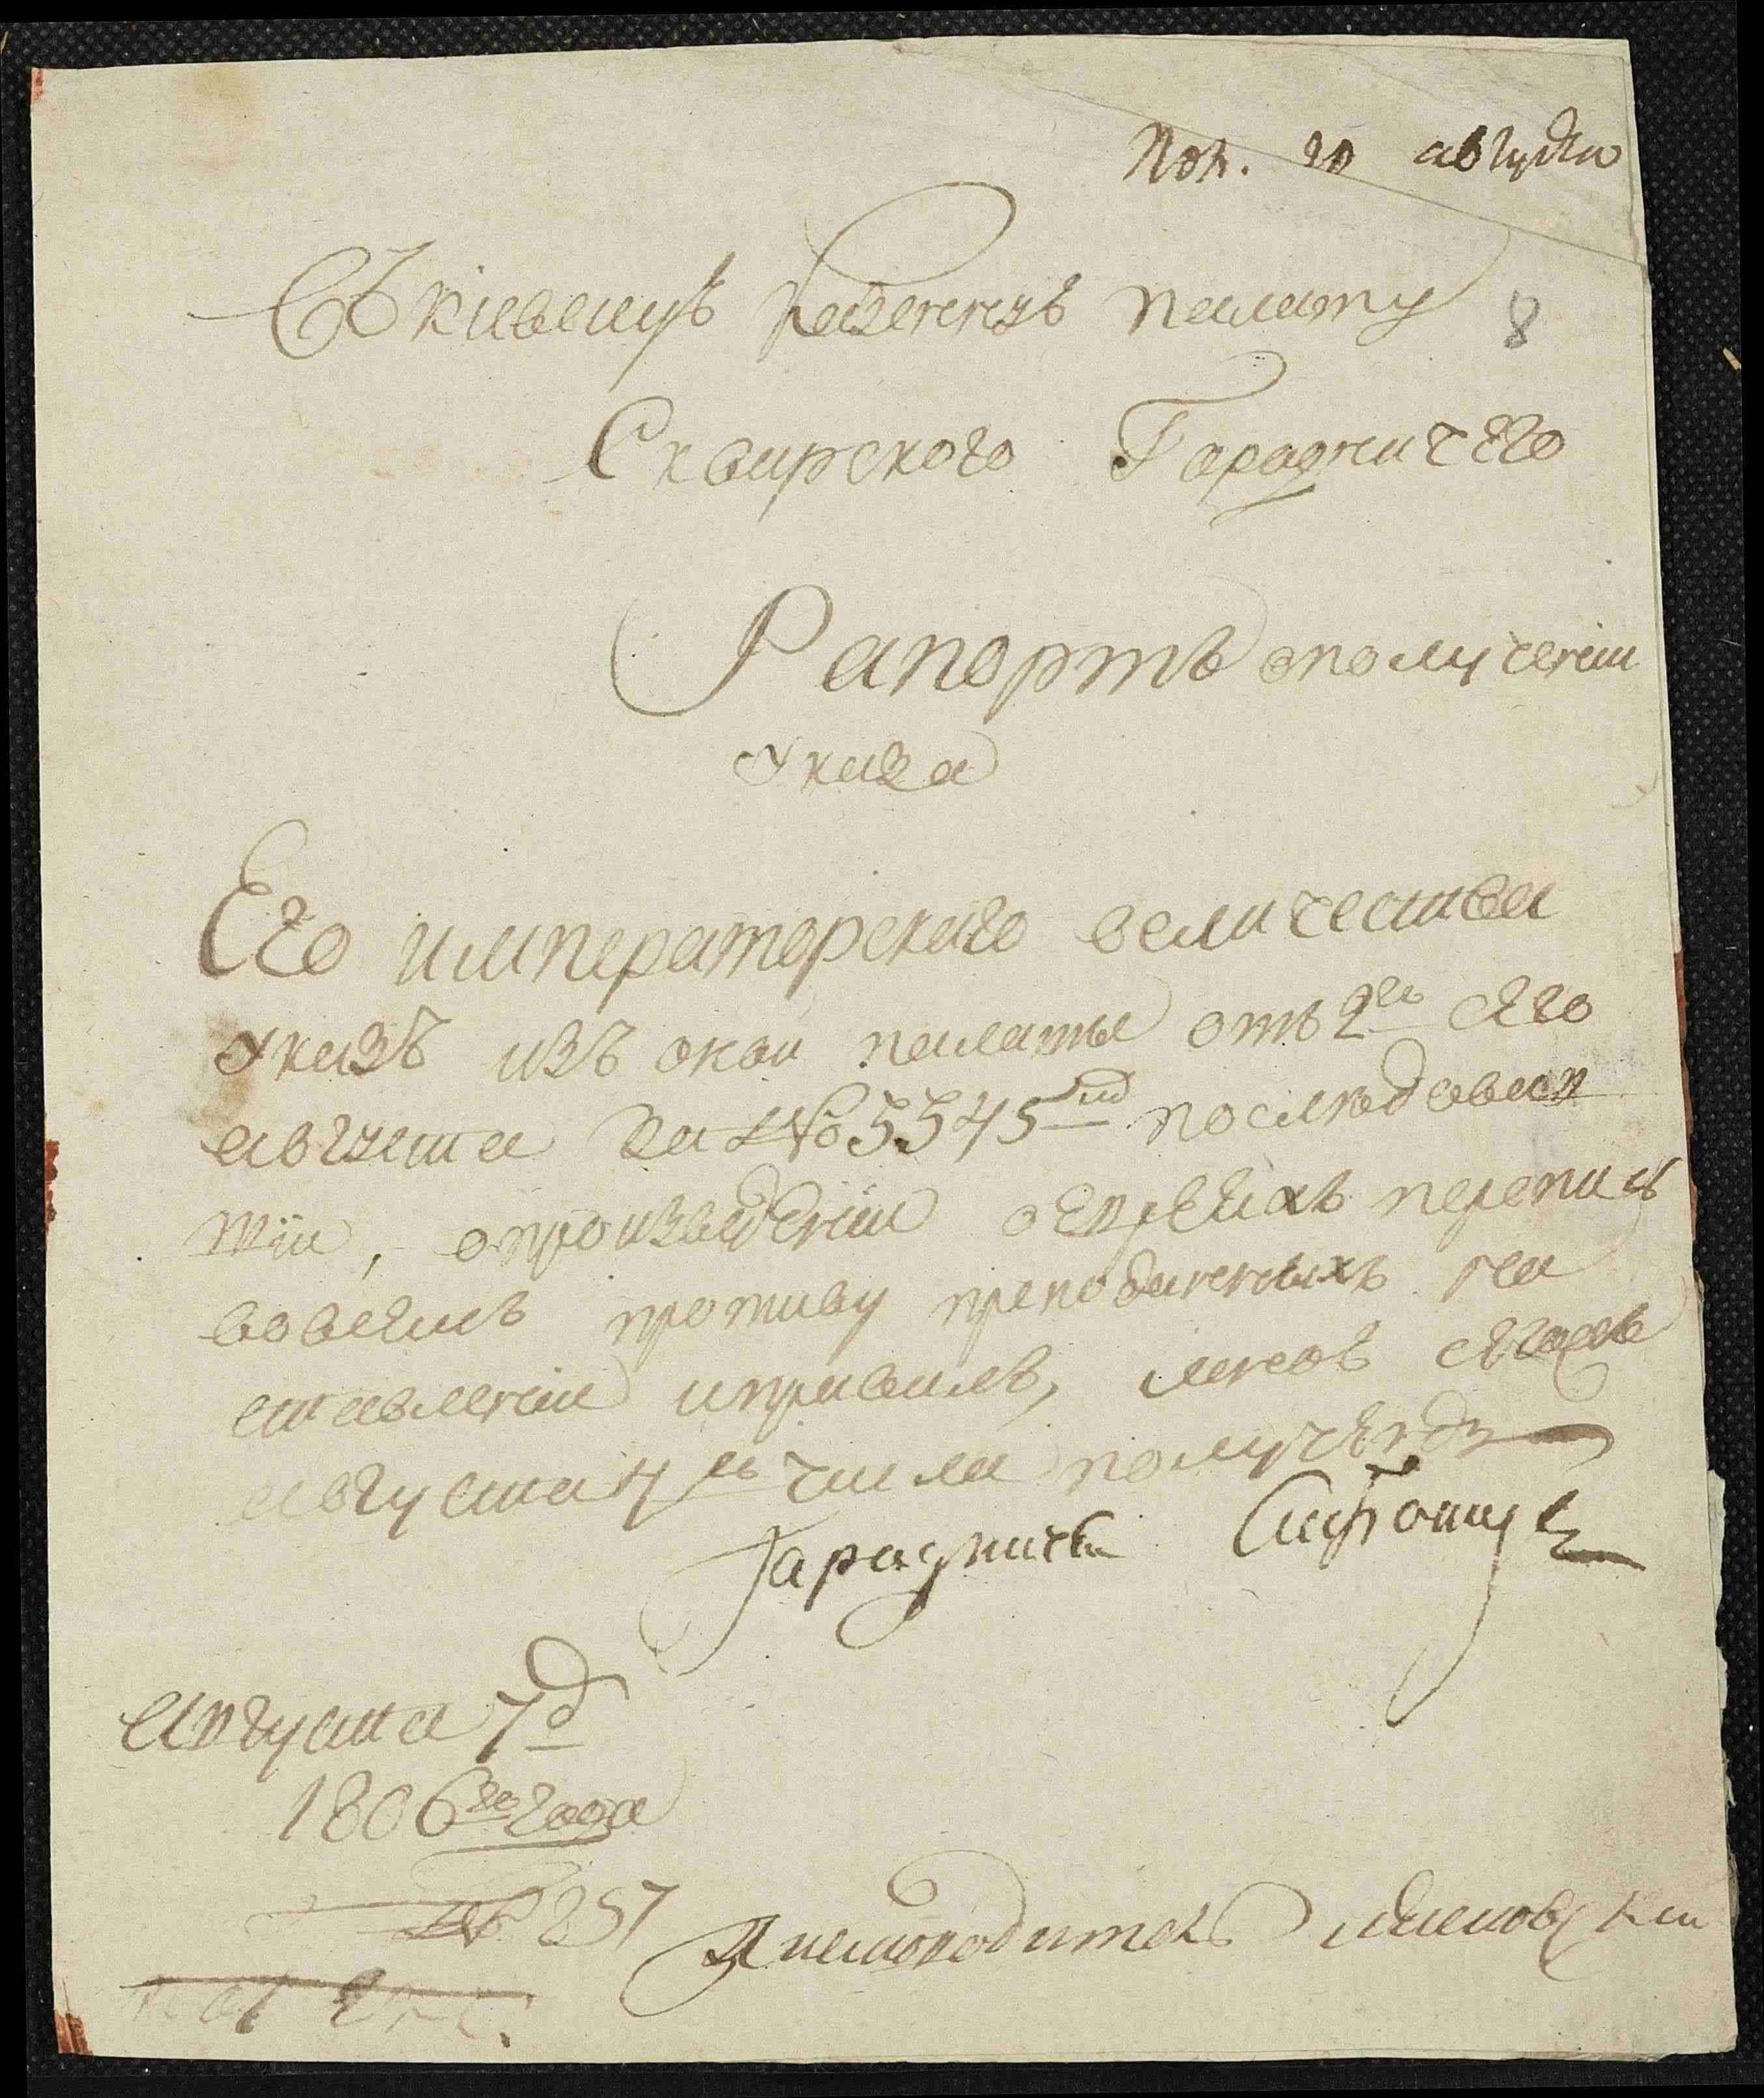 Пол. 20 августа
Въ киевскую казенную палату
8
Сквирского Гарадничего
Рапортъ о получении
указа
Его императорского величества
указъ изъ оной палаты отъ 2го сего
августа за №5545мъ последовав
ший, о произведении евреихъ перепис
противу преподанныхъ на
ставлении и правилъ, мною сего
августа 7го числа полученъ
Гарадничей
августа 7 д
1806го года
№ 257
Писмоводитель